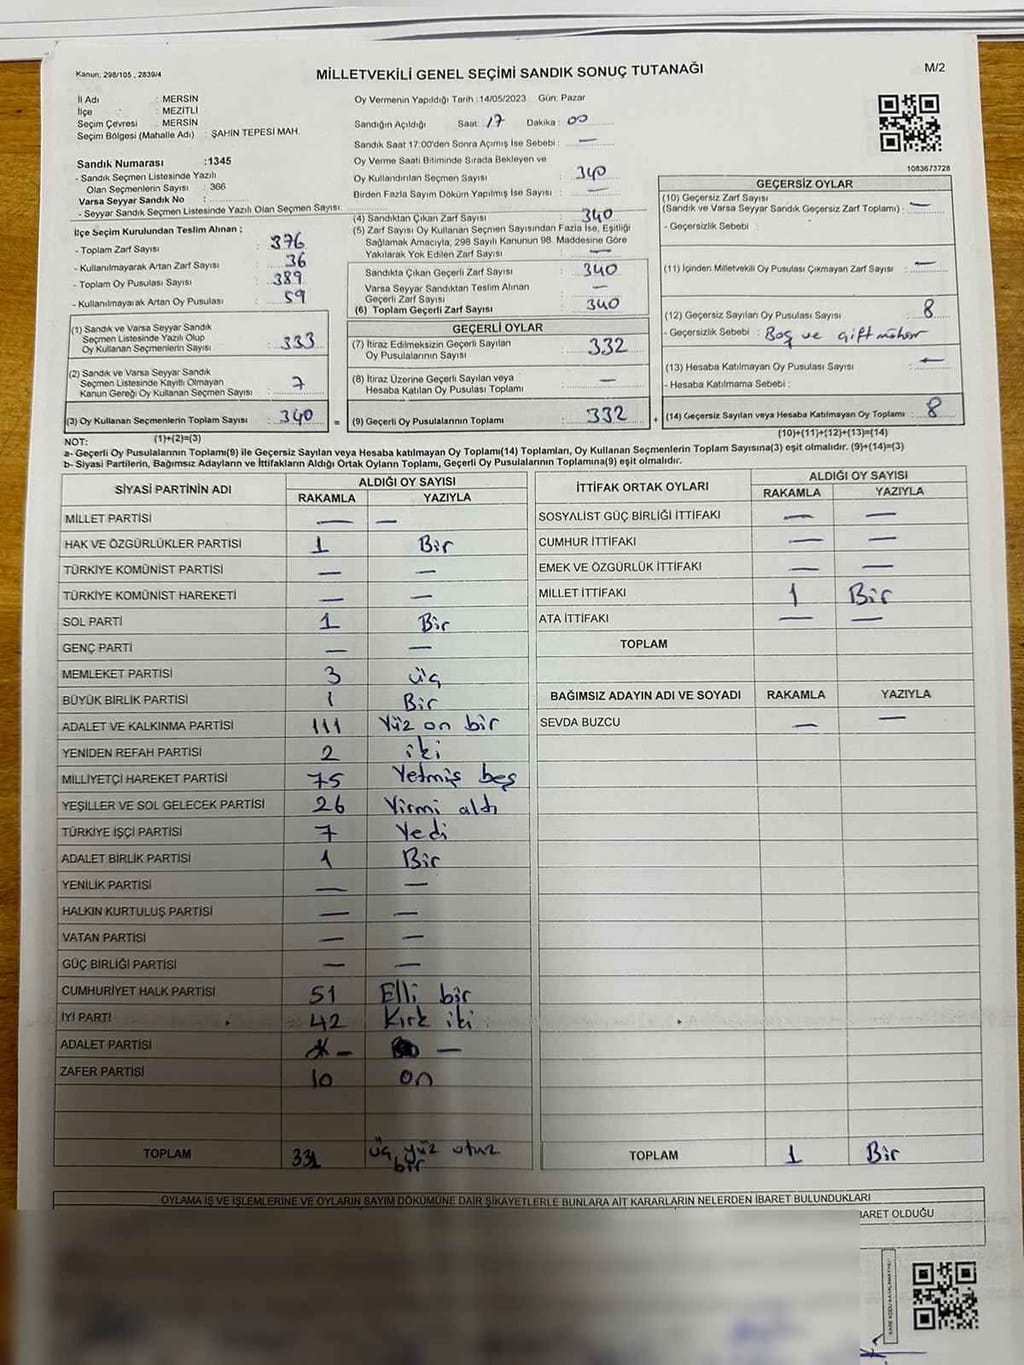 Kanun, 298/105 , 2839/4
MİLLETVEKİLİ GENEL SEÇİMİ SANDIK SONUÇ TUTANAĞI
M/2
İl Adı : MERSİN
İlçe : MEZİTLİ
Seçim Çevresi : MERSİN
Seçim Bölgesi (Mahalle Adı) : ŞAHİN TEPESİ MAH.
Oy Vermenin Yapıldığı Tarih : 14/05/2023 Gün: Pazar
Sandığın Açıldığı Saat: 17 Dakika : 00
Sandık Saat 17:00'den Sonra Açımış İse Sebebi : —
Oy Verme Saati Bitiminde Sırada Bekleyen ve
Oy Kullandırılan Seçmen Sayısı : 340
Birden Fazla Sayım Döküm Yapılmış İse Sayısı : —
1083673728
Sandık Numarası :1345
- Sandık Seçmen Listesinde Yazılı
Olan Seçmenlerin Sayısı : 366
Varsa Seyyar Sandık No :
- Seyyar Sandık Seçmen Listesinde Yazılı Olan Seçmen Sayısı:
İlçe Seçim Kurulundan Teslim Alınan ;
- Toplam Zarf Sayısı : 376
- Kullanılmayarak Artan Zarf Sayısı : 36
- Toplam Oy Pusulası Sayısı : 389
- Kullanılmayarak Artan Oy Pusulası : 59
(1) Sandık ve Varsa Seyyar Sandık
Seçmen Listesinde Yazılı Olup
Oy Kullanan Seçmenlerin Sayısı : 333
(2) Sandık ve Varsa Seyyar Sandık
Seçmen Listesinde Kayıtlı Olmayan
Kanun Gereği Oy Kullanan Seçmen Sayısı : 7
(3) Oy Kullanan Seçmenlerin Toplam Sayısı : 340 =
(1)+(2)=(3)
(4) Sandıktan Çıkan Zarf Sayısı : 340
(5) Zarf Sayısı Oy Kullanan Seçmen Sayısından Fazla İse, Eşitliği
Sağlamak Amacıyla, 298 Sayılı Kanunun 98. Maddesine Göre
Yakılarak Yok Edilen Zarf Sayısı : —
Sandıkta Çıkan Geçerli Zarf Sayısı : 340
Varsa Seyyar Sandıktan Teslim Alınan
Geçerli Zarf Sayısı : —
(6) Toplam Geçerli Zarf Sayısı : 340
GEÇERLİ OYLAR
(7) İtiraz Edilmeksizin Geçerli Sayılan
Oy Pusulalarının Sayısı : 332
(8) İtiraz Üzerine Geçerli Sayılan veya
Hesaba Katılan Oy Pusulası Toplamı : —
(9) Geçerli Oy Pusulalarının Toplamı : 332 +
GEÇERSİZ OYLAR
(10) Geçersiz Zarf Sayısı
(Sandık ve Varsa Seyyar Sandık Geçersiz Zarf Toplamı) : —
- Geçersizlik Sebebi :
(11) İçinden Milletvekili Oy Pusulası Çıkmayan Zarf Sayısı : —
(12) Geçersiz Sayılan Oy Pusulası Sayısı : 8
- Geçersizlik Sebebi : Boş ve çift mühür
(13) Hesaba Katılmayan Oy Pusulası Sayısı : —
- Hesaba Katılmama Sebebi :
(14) Geçersiz Sayılan veya Hesaba Katılmayan Oy Toplamı : 8
(10)+(11)+(12)+(13)=(14)
NOT:
a- Geçerli Oy Pusulalarının Toplamı(9) ile Geçersiz Sayılan veya Hesaba katılmayan Oy Toplamı(14) Toplamları, Oy Kullanan Seçmenlerin Toplam Sayısına(3) eşit olmalıdır. (9)+(14)=(3)
b- Siyasi Partilerin, Bağımsız Adayların ve İttifakların Aldığı Ortak Oyların Toplamı, Geçerli Oy Pusulalarının Toplamına(9) eşit olmalıdır.
SİYASİ PARTİNİN ADI ALDIĞI OY SAYISI
RAKAMLA YAZIYLA
MİLLET PARTİSİ — —
HAK VE ÖZGÜRLÜKLER PARTİSİ 1 Bir
TÜRKİYE KOMÜNİST PARTİSİ — —
TÜRKİYE KOMÜNİST HAREKETİ — —
SOL PARTİ 1 Bir
GENÇ PARTİ — —
MEMLEKET PARTİSİ 3 üç
BÜYÜK BİRLİK PARTİSİ 1 Bir
ADALET VE KALKINMA PARTİSİ 111 Yüz on bir
YENİDEN REFAH PARTİSİ 2 iki
MİLLİYETÇİ HAREKET PARTİSİ 75 Yetmiş beş
YEŞİLLER VE SOL GELECEK PARTİSİ 26 Yirmi altı
TÜRKİYE İŞÇİ PARTİSİ 7 Yedi
ADALET BİRLİK PARTİSİ 1 Bir
YENİLİK PARTİSİ — —
HALKIN KURTULUŞ PARTİSİ — —
VATAN PARTİSİ — —
GÜÇ BİRLİĞİ PARTİSİ — —
CUMHURİYET HALK PARTİSİ 51 Elli bir
İYİ PARTİ 42 Kırk iki
ADALET PARTİSİ — —
ZAFER PARTİSİ 10 on
TOPLAM 331 üç yüz otuz
bir
İTTİFAK ORTAK OYLARI ALDIĞI OY SAYISI
RAKAMLA YAZIYLA
SOSYALİST GÜÇ BİRLİĞİ İTTİFAKI — —
CUMHUR İTTİFAKI — —
EMEK VE ÖZGÜRLÜK İTTİFAKI — —
MİLLET İTTİFAKI 1 Bir
ATA İTTİFAKI — —
TOPLAM
BAĞIMSIZ ADAYIN ADI VE SOYADI RAKAMLA YAZIYLA
SEVDA BUZCU — —
TOPLAM 1 Bir
OYLAMA İŞ VE İŞLEMLERİNE VE OYLARIN SAYIM DÖKÜMÜNE DAİR ŞİKAYETLERLE BUNLARA AİT KARARLARIN NELERDEN İBARET BULUNDUKLARI
BARET OLDUĞU